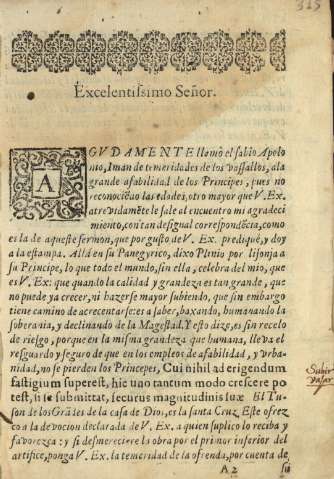 325
Excelentissimo Señor.
AGVDAMENTE llamò el sabio Apolo
nio, Iman de temeridades de los vassallos, a la
grande afabilidad de los Principes, pues no
reconociẽdo las edades, otro mayor que V. Ex.
atrevidamẽte le sale al encuentro mi agradeci
miento, con tan desigual correspondẽcia, como
es la de aqueste sermon, que por gusto de V. Ex. prediquè, y doy
a la estampa. Allà en su Panegyrico, dixo Plinio por lisonja a
su Principe, lo que todo el mundo, sin ella, celebra del mio, que
es V. Ex: que quando la calidad y grandeza es tan grande, que
no puede ya crecer, ni hazerse mayor subiendo, que sin embargo
tiene camino de acrecentarse: es a saber, baxando, humanando la
soberania, y declinando de la Magestad. Y esto dize, es sin recelo
de riesgo, porque en la misma grandeza que humana, lleva el
resguardo y seguro de que en los empleos de afabilidad, y vrba-
nidad, no se pierden los Principes, Cui nihil ad erigendum
fastigium superest, hic uno tantum modo crescere po
test, si se submittat, securus magnitudinis suæ El Tu-
son de los Grãdes de la casa de Dios, es la santa Cruz. Este ofrez
co a la devocion declarada de V. Ex. a quien suplico lo reciba y
favorezca: y si desmereciere la obra por el primor inferior del
artifice, ponga V. Ex. la temeridad de la ofrenda, por cuenta de
A 2 su
Subir
vajar